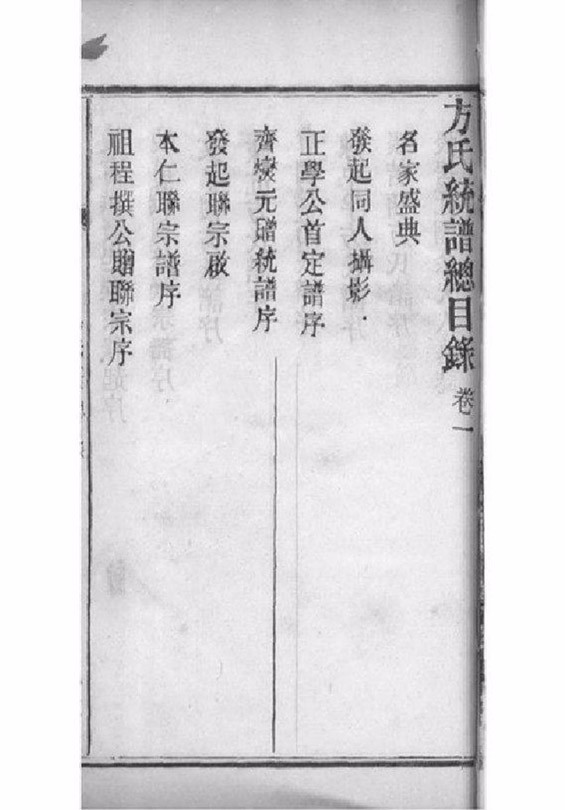 方氏統譜總目錄 卷一
名家盛典
發起同人攝影
正學公首定譜序
齊燮元贈統譜序
發起聯宗啟
本仁聯宗譜序
祖程撰公贈聯宗序